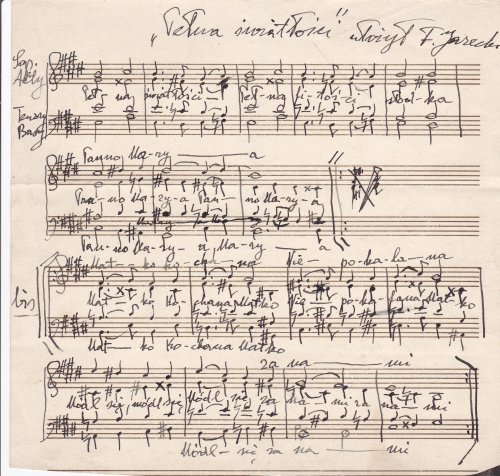 „Pełna światłości" ułożył F. Jarecki
Sop.
Alty
Tenory
Basy
Peł- na światłości Peł- na li-tości słod-ka
Panno Ma-ry — a
Pan-no Ma-ry-a Pan- no Ma-ry-a
Pan-no Ma-ry- a Mary — a
Mat- ko ko-cha-na Nie- po-ka-la-na
bis
Mat- ko Ko- chana Matko Nie- po-ka-lana Mat-ko
Mat- ko Kochana Matko
za na — mi
Módl się, módl się, Módl się za na- mi za na- mi
Módl- się za na — mi